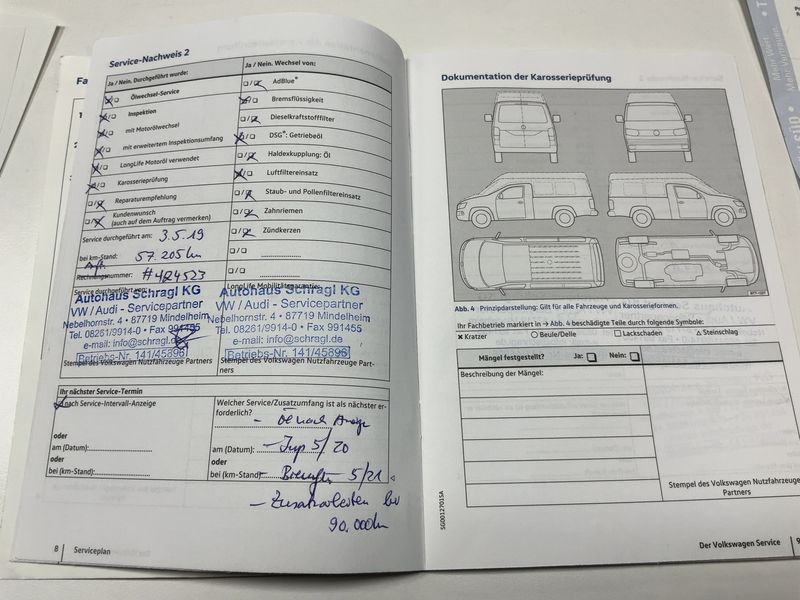 Service-Nachweis 2
Ja / Nein. Durchgeführt wurde:
Ölwechsel-Service
Inspektion
mit Motorölwechsel
mit erweitertem Inspektionsumfang
LongLife Motoröl verwendet
Karosserieprüfung
Reparaturempfehlung
Kundenwunsch
(auch auf dem Auftrag vermerken)
Service durchgeführt am: 3.5.19
bei km-Stand: 57.205 km
Rechnungsnummer: #424523
Service durchgeführt von:
Autohaus Schragl KG
VW / Audi - Servicepartner
Nebelhornstr. 4 • 87719 Mindelheim
Tel. 08261/9914-0 • Fax 991455
e-mail: info@schragl.de
Betriebs-Nr. 141/45896
Stempel des Volkswagen Nutzfahrzeuge Partners
Ja / Nein. Wechsel von:
AdBlue®
Bremsflüssigkeit
Dieselkraftstofffilter
DSG®: Getriebeöl
Haldexkupplung: Öl
Luftfiltereinsatz
Staub- und Pollenfiltereinsatz
Zahnriemen
Zündkerzen
LongLife Mobilitätsgarantie:
Autohaus Schragl KG
VW / Audi - Servicepartner
Nebelhornstr. 4 • 87719 Mindelheim
Tel. 08261/9914-0 • Fax 991455
e-mail: info@schragl.de
Betriebs-Nr. 141/45896
Stempel des Volkswagen Nutzfahrzeuge Part-
ners
Ihr nächster Service-Termin
nach Service-Intervall-Anzeige
oder
am (Datum):
oder
bei (km-Stand):
Welcher Service/Zusatzumfang ist als nächster er-
forderlich?
- Öl nach Anzeige
am (Datum): - Insp 5/20
oder
bei (km-Stand) - 5/21
- Zusatzarbeiten bei
90.000km
8 Serviceplan
Dokumentation der Karosserieprüfung
Abb. 4 Prinzipdarstellung: Gilt für alle Fahrzeuge und Karosserieformen.
Ihr Fachbetrieb markiert in → Abb. 4 beschädigte Teile durch folgende Symbole:
× Kratzer ○ Beule/Delle □ Lackschaden △ Steinschlag
Mängel festgestellt? Ja: Nein:
Beschreibung der Mängel:
Stempel des Volkswagen Nutzfahrzeuge
Partners
SG00127015A
Der Volkswagen Service 9